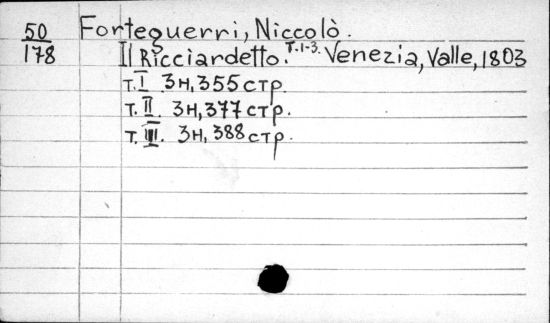 50
178
Forteguerri, Niccolò.
Il Ricciardetto. т.1-3. Venezia, Valle, 1803
т. I 3н, 355 стр.
т. II. 3н, 377 стр.
т. III. 3н, 388 стр.